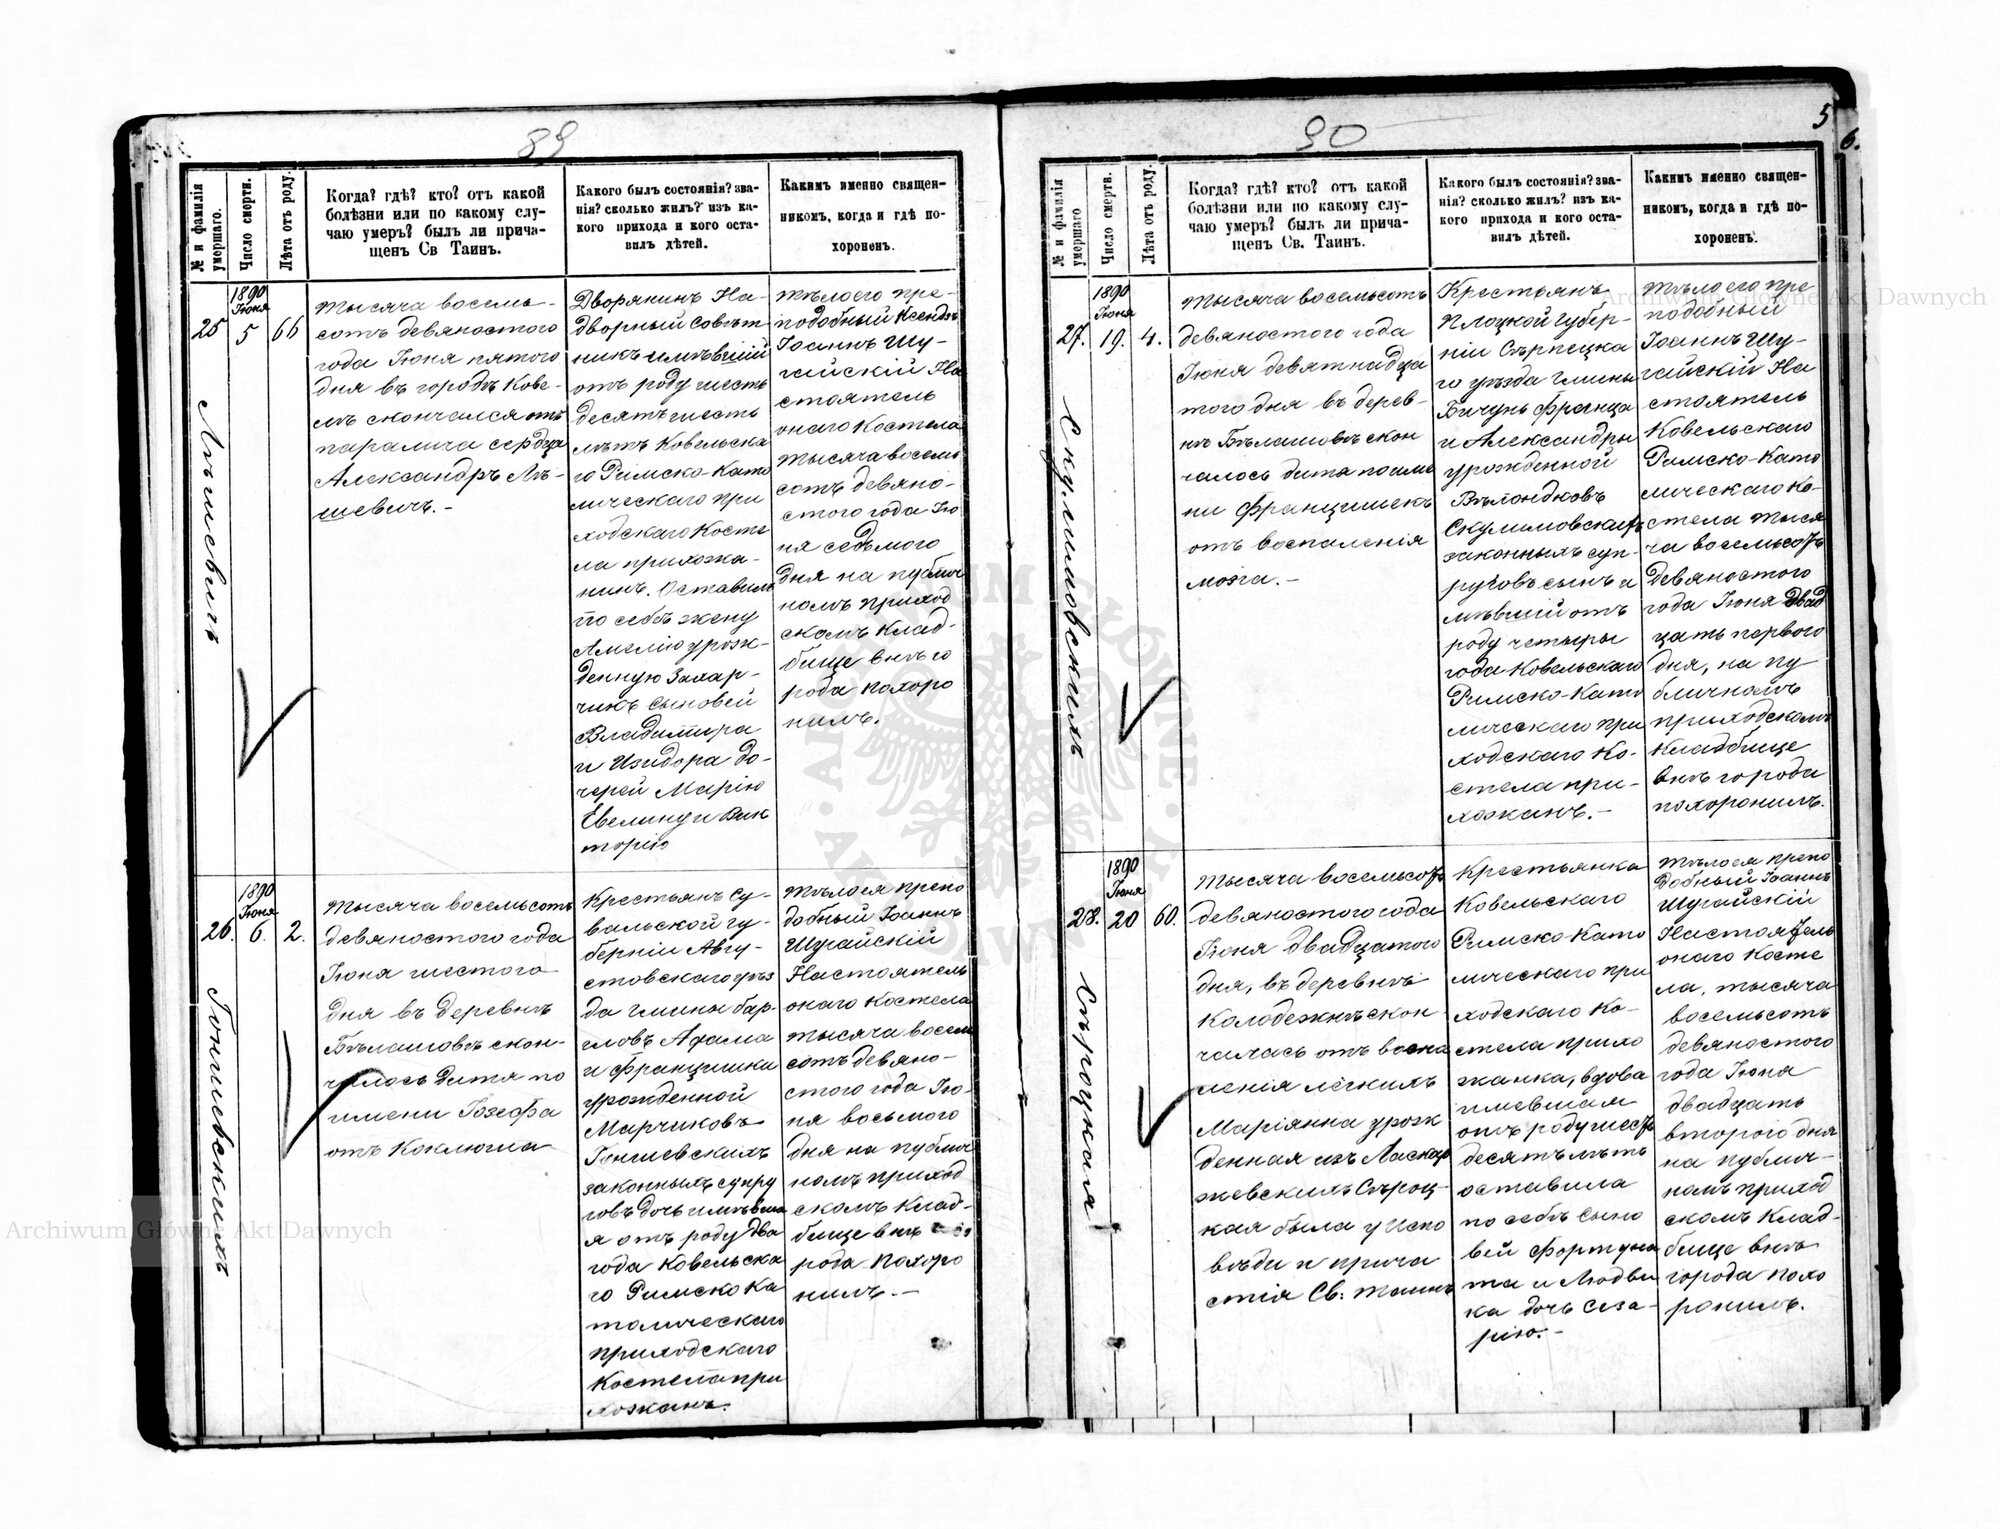 89
№ и фамилія умершаго.
Число смерти.
Лѣта отъ роду.
Когда? гдѣ? кто? отъ какой
болѣзни или по какому слу-
чаю умеръ? былъ ли прича-
щенъ Св Таинъ.
Какого былъ состоянія? зва-
нія? сколько жилъ? изъ ка-
кого прихода и кого оста-
вилъ дѣтей.
Какимъ именно священ-
никомъ, когда и гдѣ по-
хороненъ.
25
1890
Іюня
5
66
Тысяча восемь-
сотъ девяностого
года Іюня пятого
дня въ городѣ Кове-
лѣ скончался отъ
паралича сердца
Александръ Лѣ-
шевичъ.-
Дворянинъ На-
дворный Совѣт
никъ имѣвшій
отъ роду шесть
десятъ шесть
лѣтъ Ковельска
го Римско-Като
лическаго при
ходскаго Косте
ла прихожа-
нинъ. Оставилъ
по себѣ жену
Амелію урож-
денную Захар-
чикъ сыновей
Владимира
и Изидора до-
черей Марію
Евелину и Вик
торію
Тѣло его пре-
подобный Ксендзъ
Іоаннъ Шу-
гайскій На
стоятель
онаго Костела
тысяча восемь
сотъ девяно-
стого года Ію
ня седьмого
дня на публич
номъ приход
скомъ Клад-
бище внѣ го
рода похоро
нилъ.
26.
1890
Іюня
6.
2.
Гоншевскихъ
Тысяча восемьсотъ
девяностого года
Іюня шестого
дня въ деревнѣ
Бѣлашовѣ скон-
чалось дитя по
имени Іозефа
отъ Коклюша
Крестьянъ Су-
вальской гу-
берніи Авгу-
стовскаго уѣз
да гмины Бар-
гловъ Адама
и Францишки
урожденной
Марчиковъ
Гоншевскихъ
законныхъ супру
говъ дочь имѣвша
я отъ роду два
года Ковельска
го Римско Ка
толическаго
приходскаго
Костела при
хожанъ.
Тѣло ея препо
добный Іоаннъ
Шугайскій
Настоятель
онаго Костела
тысяча восем
сотъ девяно-
стого года Ію-
ня восьмого
дня на публич
номъ приход
скомъ Клад-
бище внѣ го
рода похоро
нилъ.-
90
5
6.
№ и фамилія умершаго
Число смерти.
Лѣта отъ роду.
Когда? гдѣ? кто? отъ какой
болѣзни или по какому слу-
чаю умеръ? былъ ли прича-
щенъ Св. Таинъ.
Какого былъ состоянія? зва-
нія? сколько жилъ? изъ ка-
кого прихода и кого оста-
вилъ дѣтей.
Какимъ именно священ-
никомъ, когда и гдѣ по-
хороненъ.
27.
1890
Іюня
19.
4.
Скулимовскихъ
Тысяча восемьсотъ
девяностого года
Іюня девятнадца
того дня въ дерев-
нѣ Бѣлашовѣ скон
чалось дитя по име
ни Францишекъ
отъ воспаленія
мозга.-
Крестьянъ
Плоцкой Губер-
ніи Сѣрпецка
го уѣзда гмины
Бичунь Франца
и Александры
урожденной
Скулимовскихъ
законныхъ суп-
руговъ сынъ и
мѣвшій отъ
роду четыры
года Ковельскаго
Римско-Като
лическаго при
ходскаго Ко-
стела при-
хожанъ.-
Тѣло его пре
подобный
Іоаннъ Шу-
гайскій На
стоятель
Ковельскаго
Римско-Като
лическаго Ко-
стела тыся
ча восемьсотъ
девяностого
года Іюня двад
цать первого
дня, на пу
бличномъ
приходскомъ
Кладбище
внѣ города
похоронилъ.
28.
1890
Іюня
20
60.
Сѣроцкая
Тысяча восемьсотъ
девяностого года
Іюня двадцатого
дня, въ деревнѣ
Колодежнѣ скон
чалась отъ воспа
ленія лёгкихъ
Маріянна урож
денная изъ Ласкар
жевскихъ Сѣроц-
кая была у Испо
вѣди и прича
стія Св: Таинъ
Крестьянка
Ковельскаго
Римско-Като
лическаго при
ходскаго Ко-
стела прихо
жанка, вдова
имевшая
отъ роду шесть
десятъ лѣтъ
оставила
по себѣ сыно
вей Фортуна
та и Людви
ка дочь Сеза-
рію.-
Тѣло ея препо
добный Іоаннъ
Шугайскій
Настоятель
онаго Косте
ла, тысяча
восемьсотъ
девяностого
года Іюня
двадцать
второго дня
на публич-
номъ приход
скомъ Клад-
бище внѣ
города похо
ронилъ.
Archiwum Główne Akt Dawnych
Archiwum Główne Akt Dawnych